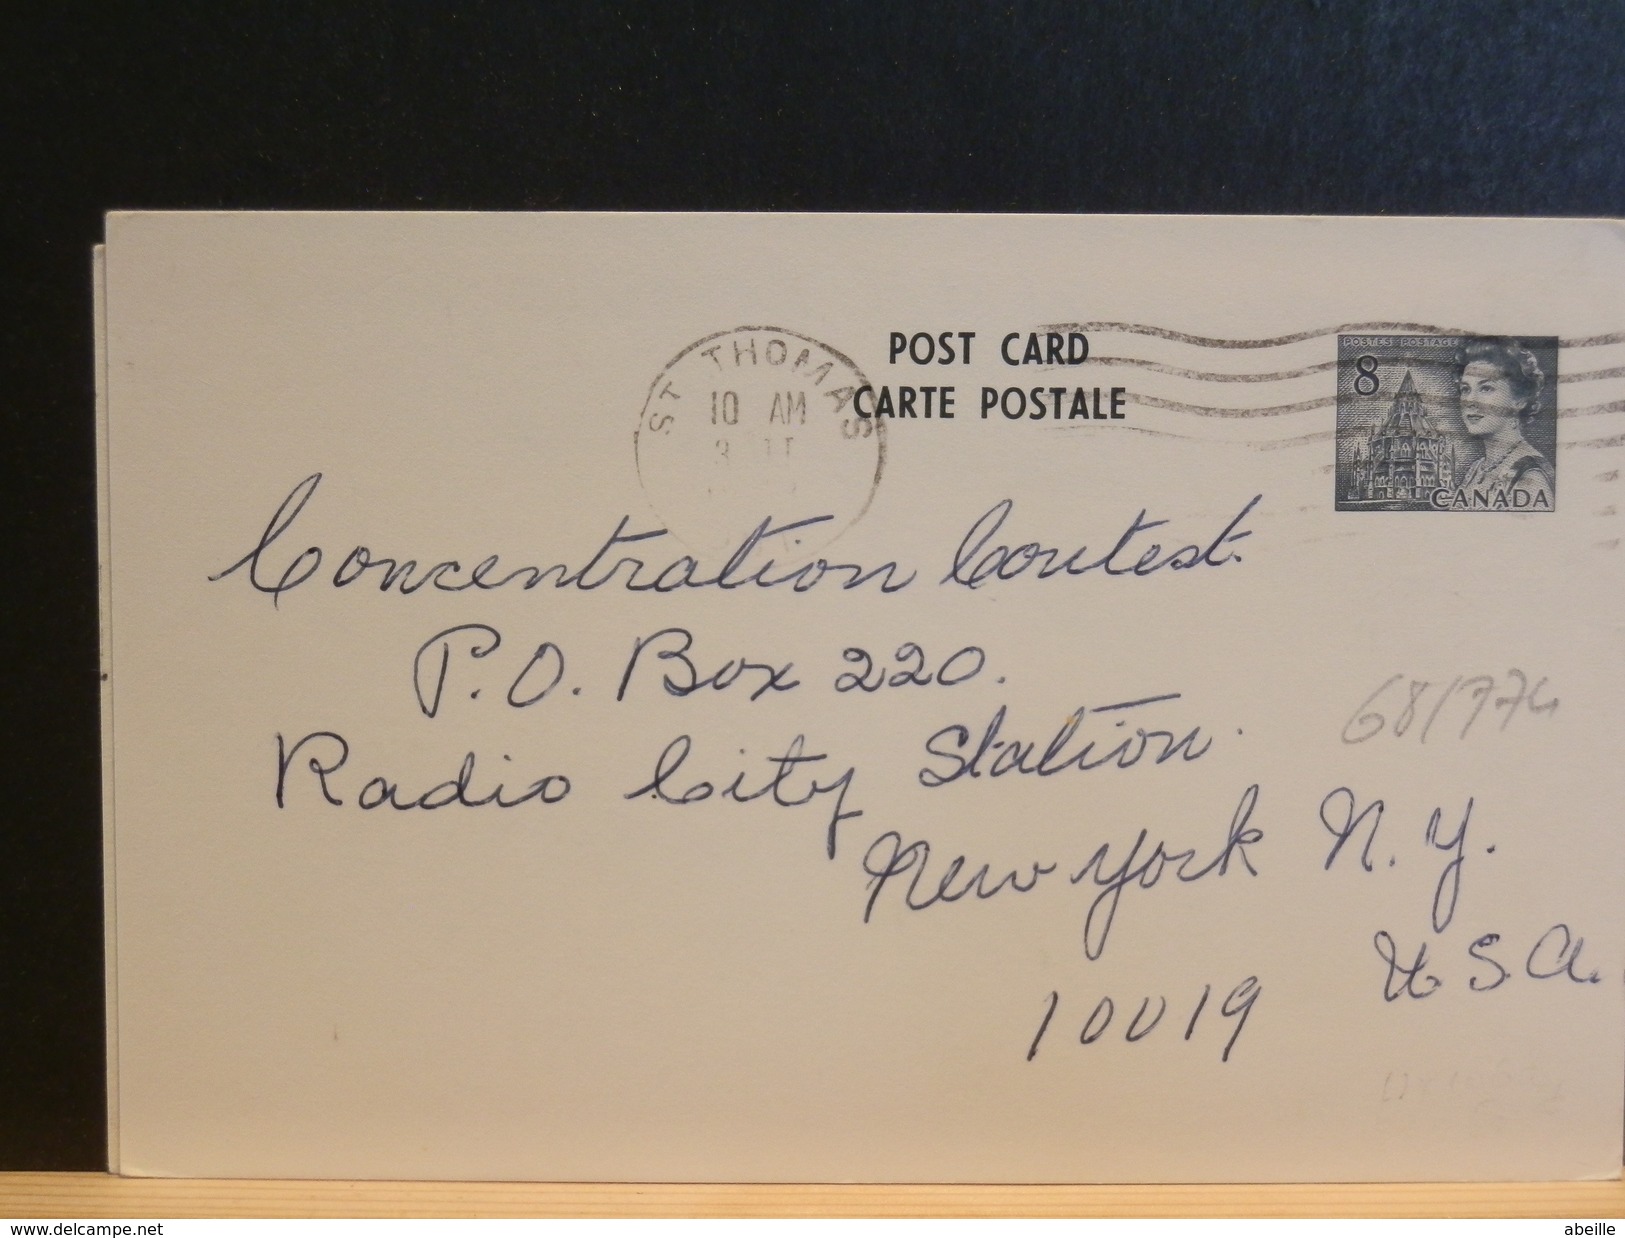 POST CARD
CARTE POSTALE
ST THOMAS
10 AM
POSTES POSTAGE
8
CANADA
Concentration Contest.
P.O. Box 220.
Radio City Station.
New York N.Y.
U.S.A.
10019
68/774
delcampe.net
abeille